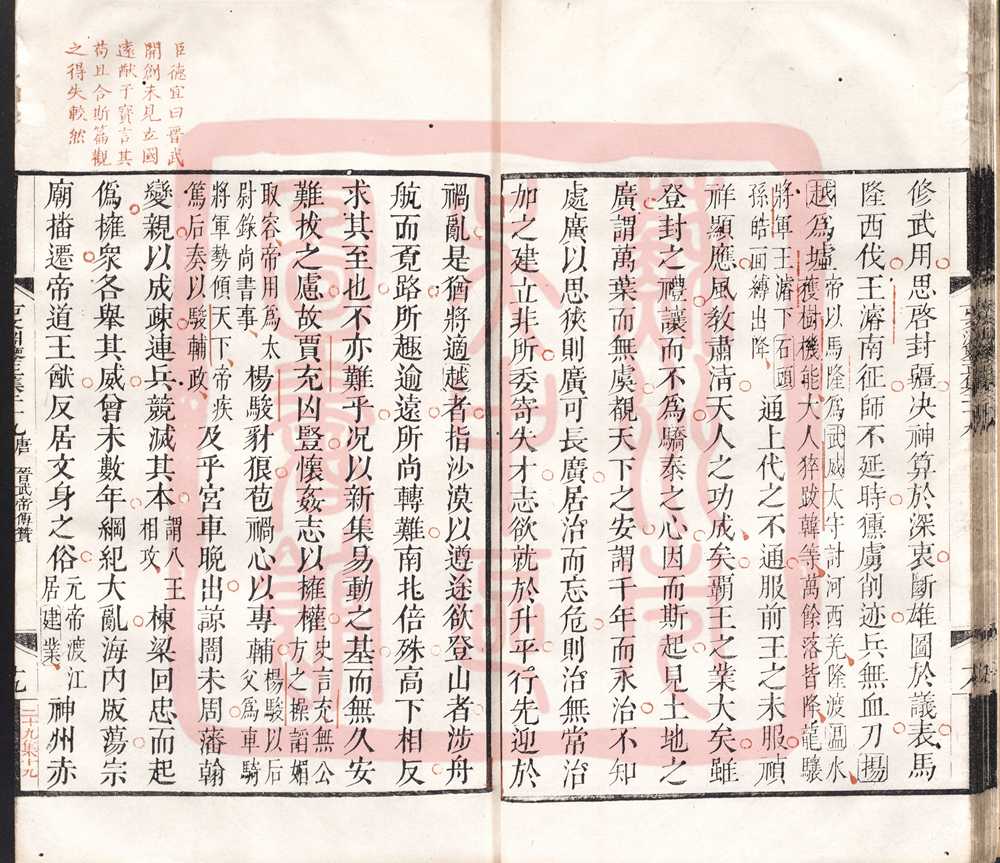 修武用思啓封疆决神算於深衷斷雄圖於議表馬
隆西伐王濬南征師不延時獯虜削迹兵無血刀揚
越爲墟帝以馬隆爲武威太守討河西羌隆渡溫水
獲樹機能大人猝跋韓等萬餘落皆降龍驤
將軍王濬下石頭
孫皓面縛出降
通上代之不通服前王之未服禎
祥顯應風教肅清天人之功成矣霸王之業大矣雖
登封之禮讓而不爲驕泰之心因而斯起見土地之
廣謂萬葉而無虞覩天下之安謂千年而永治不知
處廣以思狹則廣可長廣居治而忘危則治無常治
加之建立非所委寄失才志欲就於升平行先迎於
禍亂是猶將適越者指沙漠以遵途欲登山者涉舟
航而覓路所趣逾遠所尚轉難南北倍殊高下相反
求其至也不亦難乎況以新集易動之基而無久安
難拔之慮故賈充凶豎懷姦志以擁權
史言充無公
方之操謟媚
取容帝用爲太
尉錄尚書事
楊駿豺狼苞禍心以專輔
楊駿以后
父爲車騎
將軍勢傾天下帝疾
篤后奏以駿輔政
及乎宮車晚出諒闇未周藩翰
變親以成疎連兵競滅其本
謂八王
相攻
棟梁回忠而起
僞擁衆各舉其威曾未數年綱紀大亂海内版蕩宗
廟播遷帝道王猷反居文身之俗
元帝渡江
居建業
神州赤
臣德宜曰晋武
開創未見立國
遠猷干寶言其
苟且合斯篇觀
之得失較然
唐
晉武帝傳贊
十九
二十九集十九